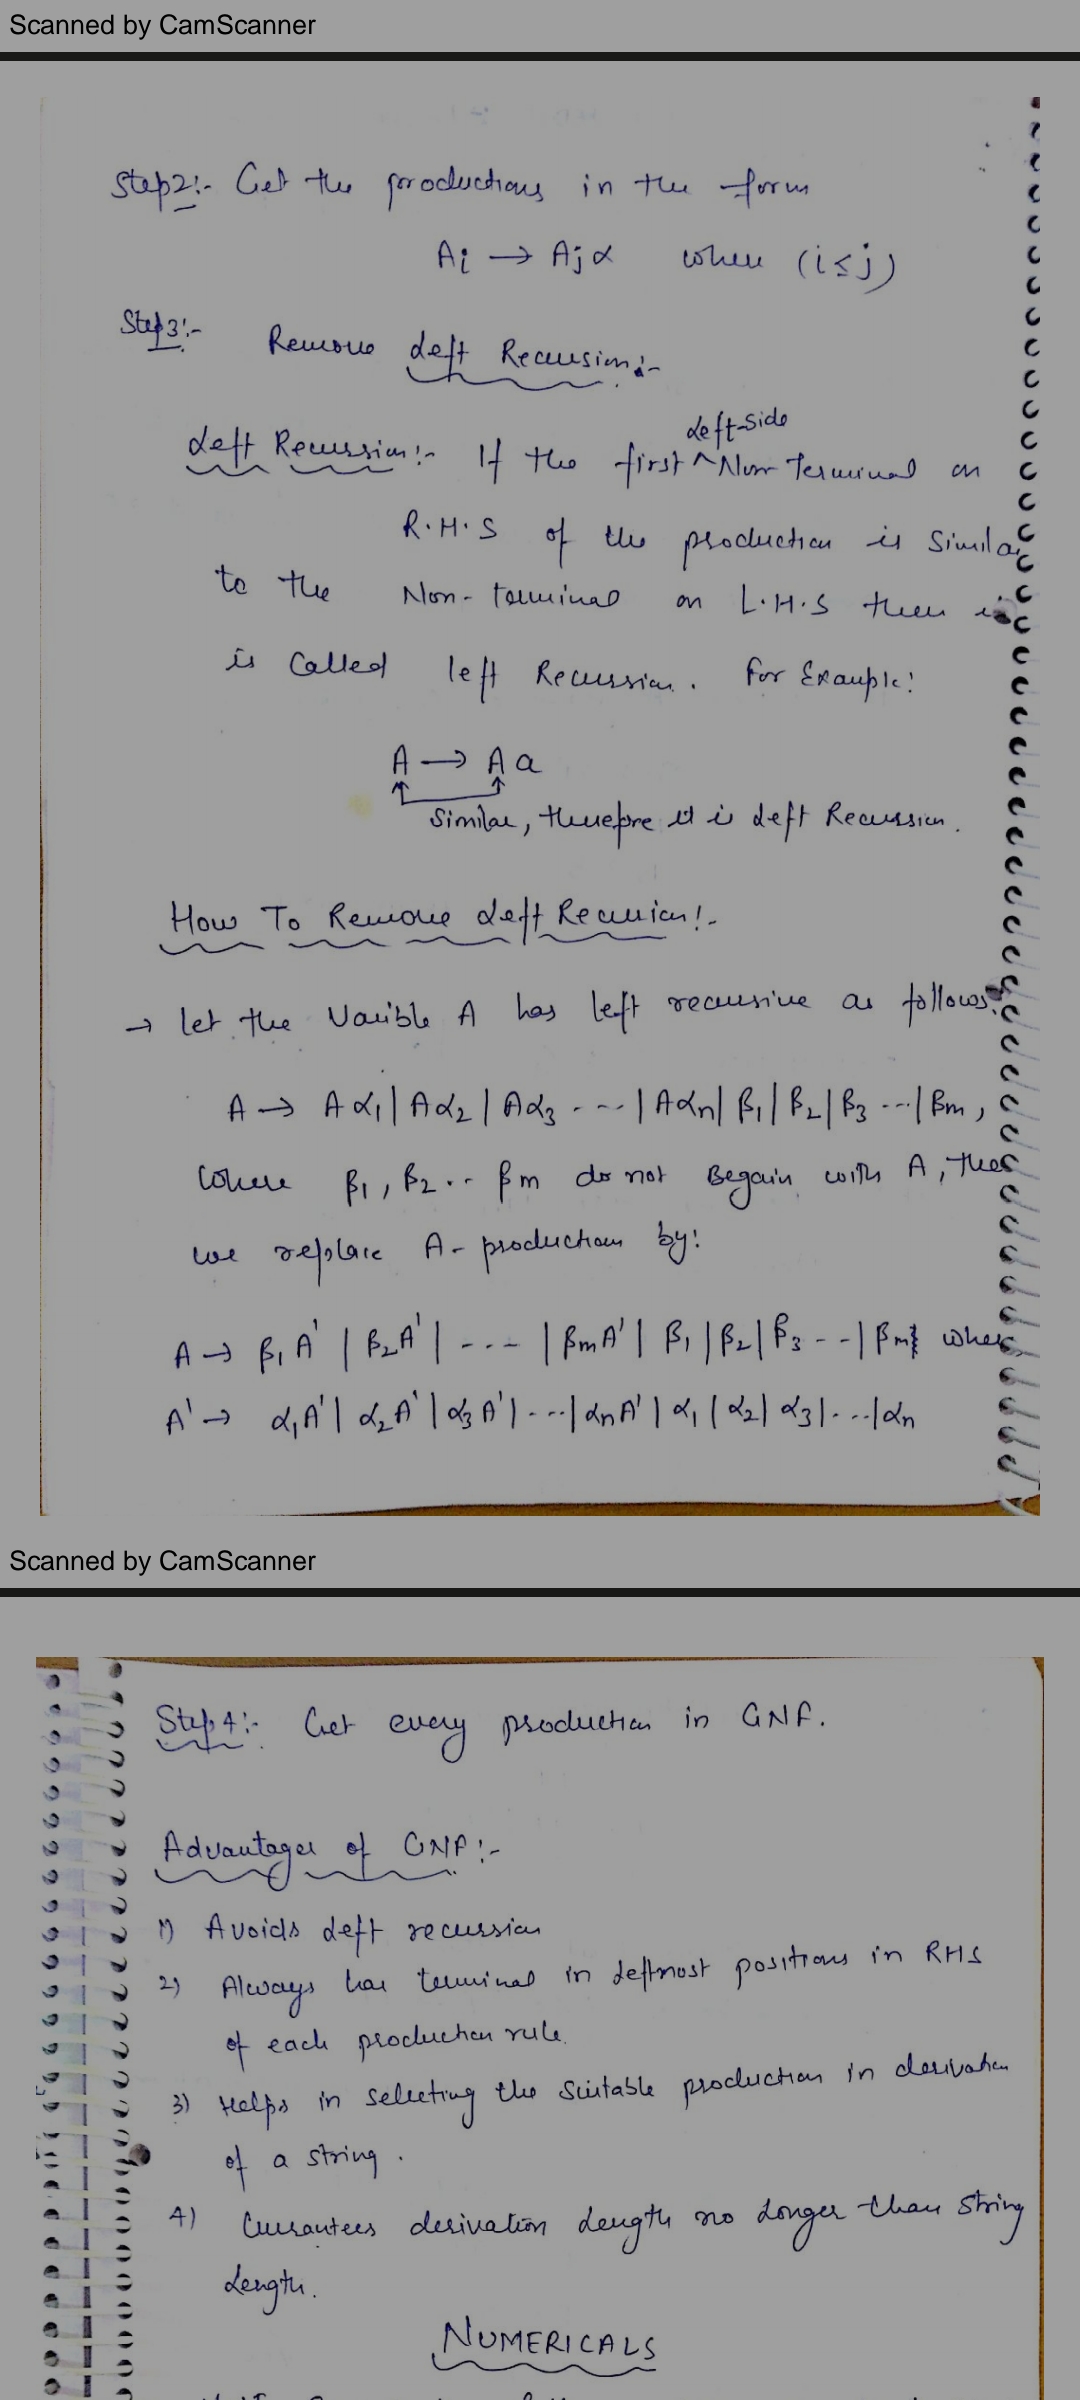 Scanned by CamScanner
Step2:- Get the productions in the form
Ai → Ajα when (i≤j)
Step3:- Remove Left Recursion:-
Left Recursion:- If the first ^ Left-side Non Terminal on
R.H.S of the production is Simila
to the Non-terminal on L.H.S then i
is Called left Recursion. For Example:
A → A a
Similar, therefore it is Left Recursion.
How To Remove Left Recursion:-
→ let the Varible A has left recursive as follows:
A → Aα1 | Aα2 | Aα3 ---- | Aαn | β1 | β2 | β3 ---- | βm,
Where β1, β2 .. βm do not Begain with A, then
we replace A-production by:
A → β1A' | β2A' | ---- | βmA' | β1 | β2 | β3 -- | βm where
A' → α1A' | α2A' | α3A' | ---- | αnA' | α1 | α2 | α3 | ---- | αn
Scanned by CamScanner
Step4:- Get every production in GNF.
Advantages of GNF:-
1) Avoids Left recursion
2) Always has terminal in Leftmost positions in RHS
of each production rule.
3) Helps in selecting the Suitable production in derivation
of a string.
4) Gurantees derivation Length no Longer than String
Length.
NUMERICALS